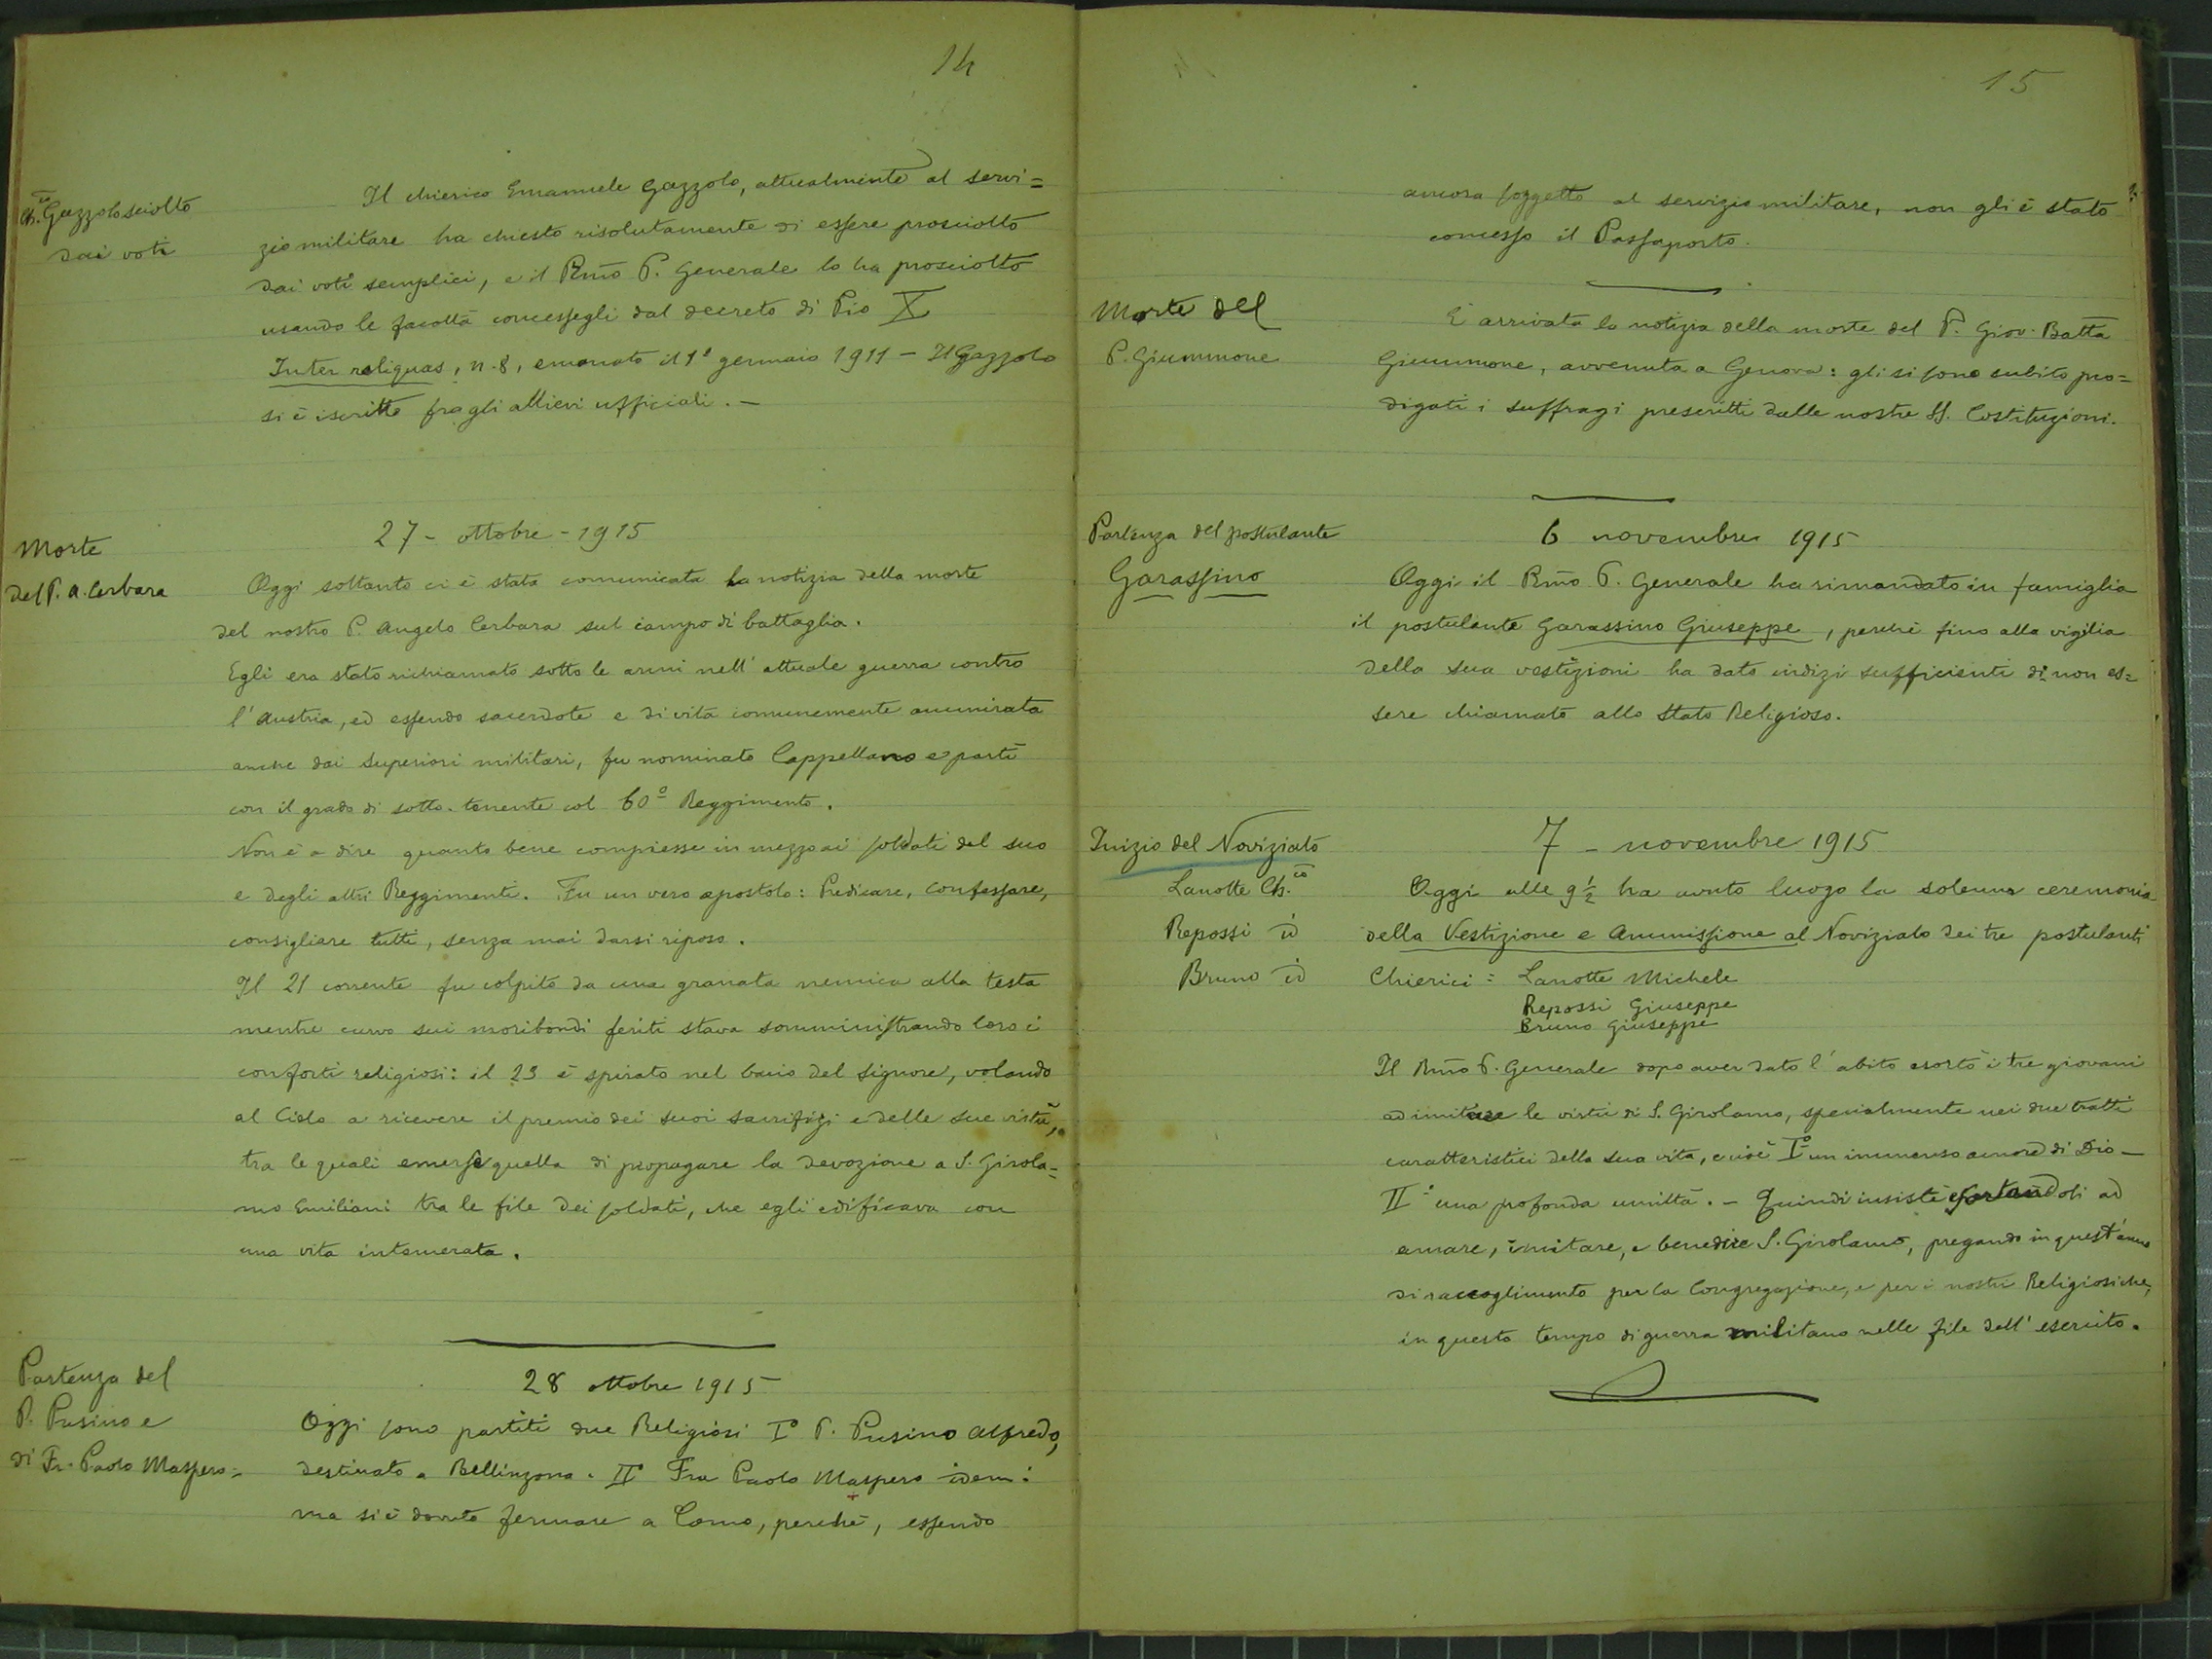 14
Ch.co Gazzolo sciolto
dai voti
Il chierico Emanuele Gazzolo, attualmente al servi=
zio militare ha chiesto risolutamente di essere prosciolto
dai voti semplici, e il Rmo P. Generale lo ha prosciolto
usando le facoltà concessegli dal decreto di Pio X
Inter reliquas, n. 8, emanato il 1° gennaio 1911 - Il Gazzolo
si è iscritto fra gli allievi ufficiali. -
27 - ottobre - 1915
Morte
del P. A. Cerbara
Oggi soltanto ci è stata comunicata la notizia della morte
del nostro P. Angelo Cerbara sul campo di battaglia.
Egli era stato richiamato sotto le armi nell' attuale guerra contro
l' Austria, ed essendo sacerdote e di vita comunemente ammirata
anche dai superiori militari, fu nominato Cappellano e partì
con il grado di sotto-tenente col 60° Reggimento.
Non è a dire quanto bene compiesse in mezzo ai soldati del suo
e degli altri Reggimenti. Fu un vero apostolo: Predicare, confessare,
consigliare tutti, senza mai darsi riposo.
Il 21 corrente fu colpito da una granata nemica alla testa
mentre curvo sui moribondi feriti stava somministrando loro i
conforti religiosi: il 23 è spirato nel bacio del Signore, volando
al Cielo a ricevere il premio dei suoi sacrifizi e delle sue virtù,
tra le quali emerse quella di propagare la devozione a S. Girola=
mo Emiliani tra le file dei soldati, che egli edificava con
una vita intemerata.
28 ottobre 1915
Partenza del
P. Pusino e
di Fr. Paolo Maspero=
Oggi sono partiti due Religiosi I° P. Pusino Alfredo,
destinato a Bellinzona. II° Fra Paolo Maspero idem:
ma si è dovuto fermare a Como, perchè, essendo
15
ancora soggetto al servizio militare, non gli è stato
concesso il Passaporto.
Morte del
P. Giummone
È arrivata la notizia della morte del P. Giov. Batta
Giummone, avvenuta a Genova: gli si sono subito pro=
digati i suffragi prescritti dalle nostre SS. Costituzioni.
Partenza del postulante
Garassino
6 novembre 1915
Oggi il Rmo P. Generale ha rimandato in famiglia
il postulante Garassino Giuseppe, perchè fino alla vigilia
della sua vestizioni ha dato indizi sufficienti di non es=
sere chiamato allo Stato Religioso.
Inizio del Noviziato
Lanotte Ch.co
Repossi id
Bruno id
7 - novembre 1915
Oggi alle 9 1/2 ha avuto luogo la solenne ceremonia
della Vestizione e Ammissione al Noviziato dei tre postulanti
Chierici: Lanotte Michele
Repossi Giuseppe
Bruno Giuseppe
Il Rmo P. Generale dopo aver dato l' abito esortò i tre giovani
ad imitare le virtù di S. Girolamo, specialmente nei due tratti
caratteristici della sua vita, e cioè I° un immenso amore di Dio -
II° una profonda umiltà. - Quindi insistè esortandoli ad
amare, imitare, e benedire S. Girolamo, pregando in quest' anno
di raccoglimento per la Congregazione, e per i nostri Religiosi che,
in questo tempo di guerra militano nelle file dell' esercito.